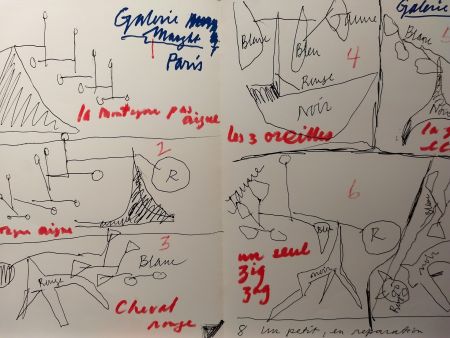 Galerie
Maeght
Paris
1
la montagne pas
aigue
2
R
aigue
3
Rouge
Blanc
Cheval
rouge
Blanc
Bleu
Jaune
4
Rouge
Noir
les 3 oreilles
Galerie
Blanc
5
Noir
la 3
Jaune
6
Bleu
R
noir
un seul
Zig
Zag
Blanc
noir
Rouge
8 Un petit, en reparation